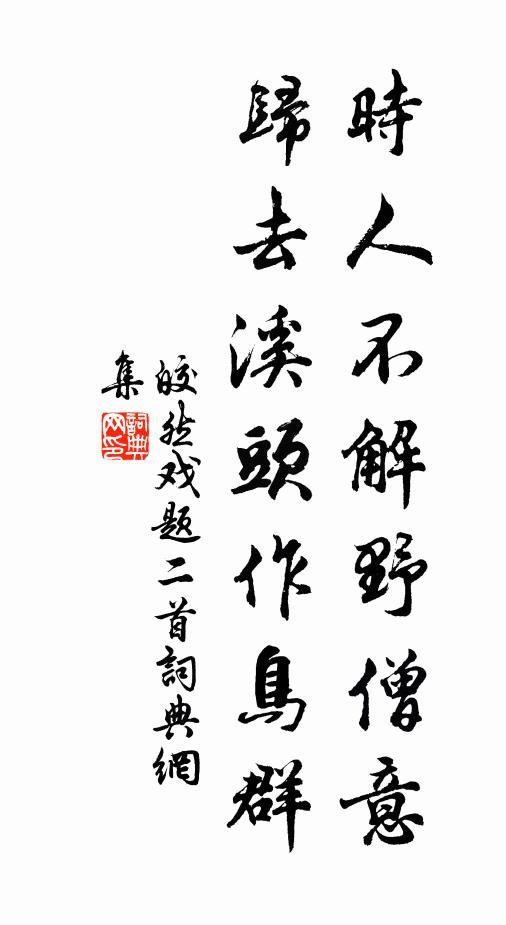 時人不解野僧意
歸去溪頭作鳥群
皎然戏题二首詞典網
集
詞典
网印